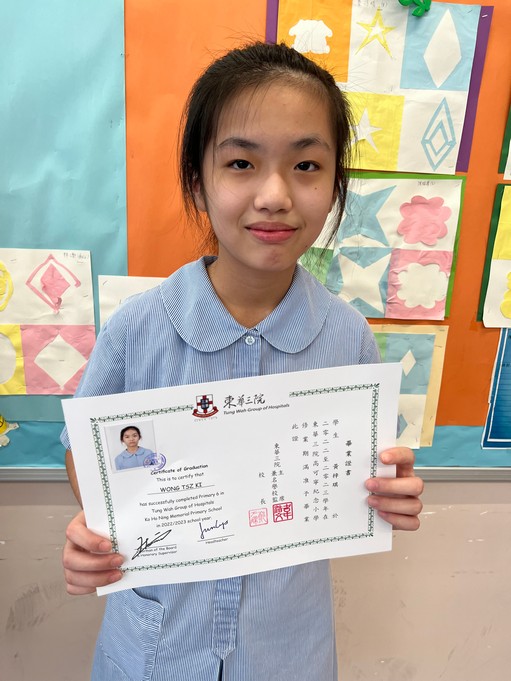 東華三院
Tung Wah Group of Hospitals
Certificate of Graduation
This is to certify that
WONG TSZ KI
has successfully completed Primary 6 in
Tung Wah Group of Hospitals
Ko Ho Ning Memorial Primary School
in 2022/2023 school year.
Chairman of the Board
Honorary Supervisor
Headteacher
畢業證書
學生 黃梓琪 於
二零二二至二零二三學年在
東華三院高可寧紀念小學
修業期滿准予畢業
此證
東華三院主席
名譽校監
校長